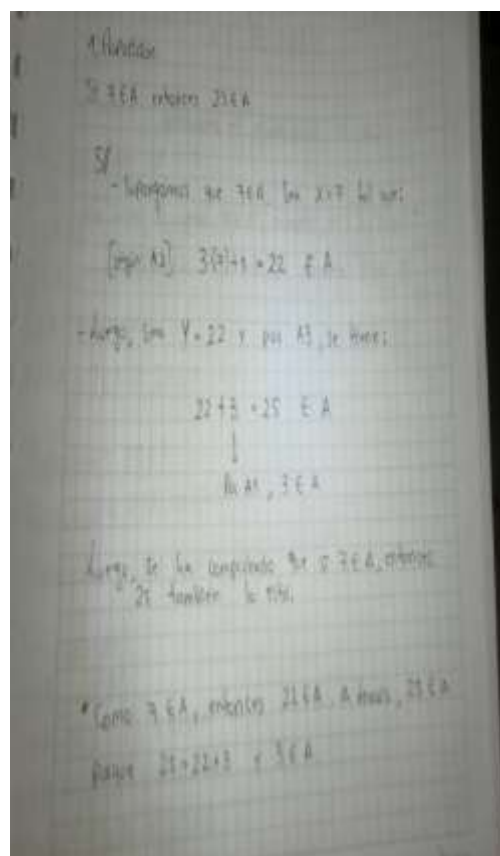 Si 7 ∈ A entonces 25 ∈ A
S/
- Supongamos que 7 ∈ A Con x = 7
[según A2] 3(7) + 1 = 22 ∈ A
- Luego, con Y = 22 y por A3, se tiene:
22 + 3 = 25 ∈ A
↓
Por A1, 3 ∈ A
Luego, se ha comprobado que si 7 ∈ A, entonces
25 también lo está.
* Como 7 ∈ A, entonces 22 ∈ A. A demás, 25 ∈ A
porque 25 = 22 + 3 y 3 ∈ A